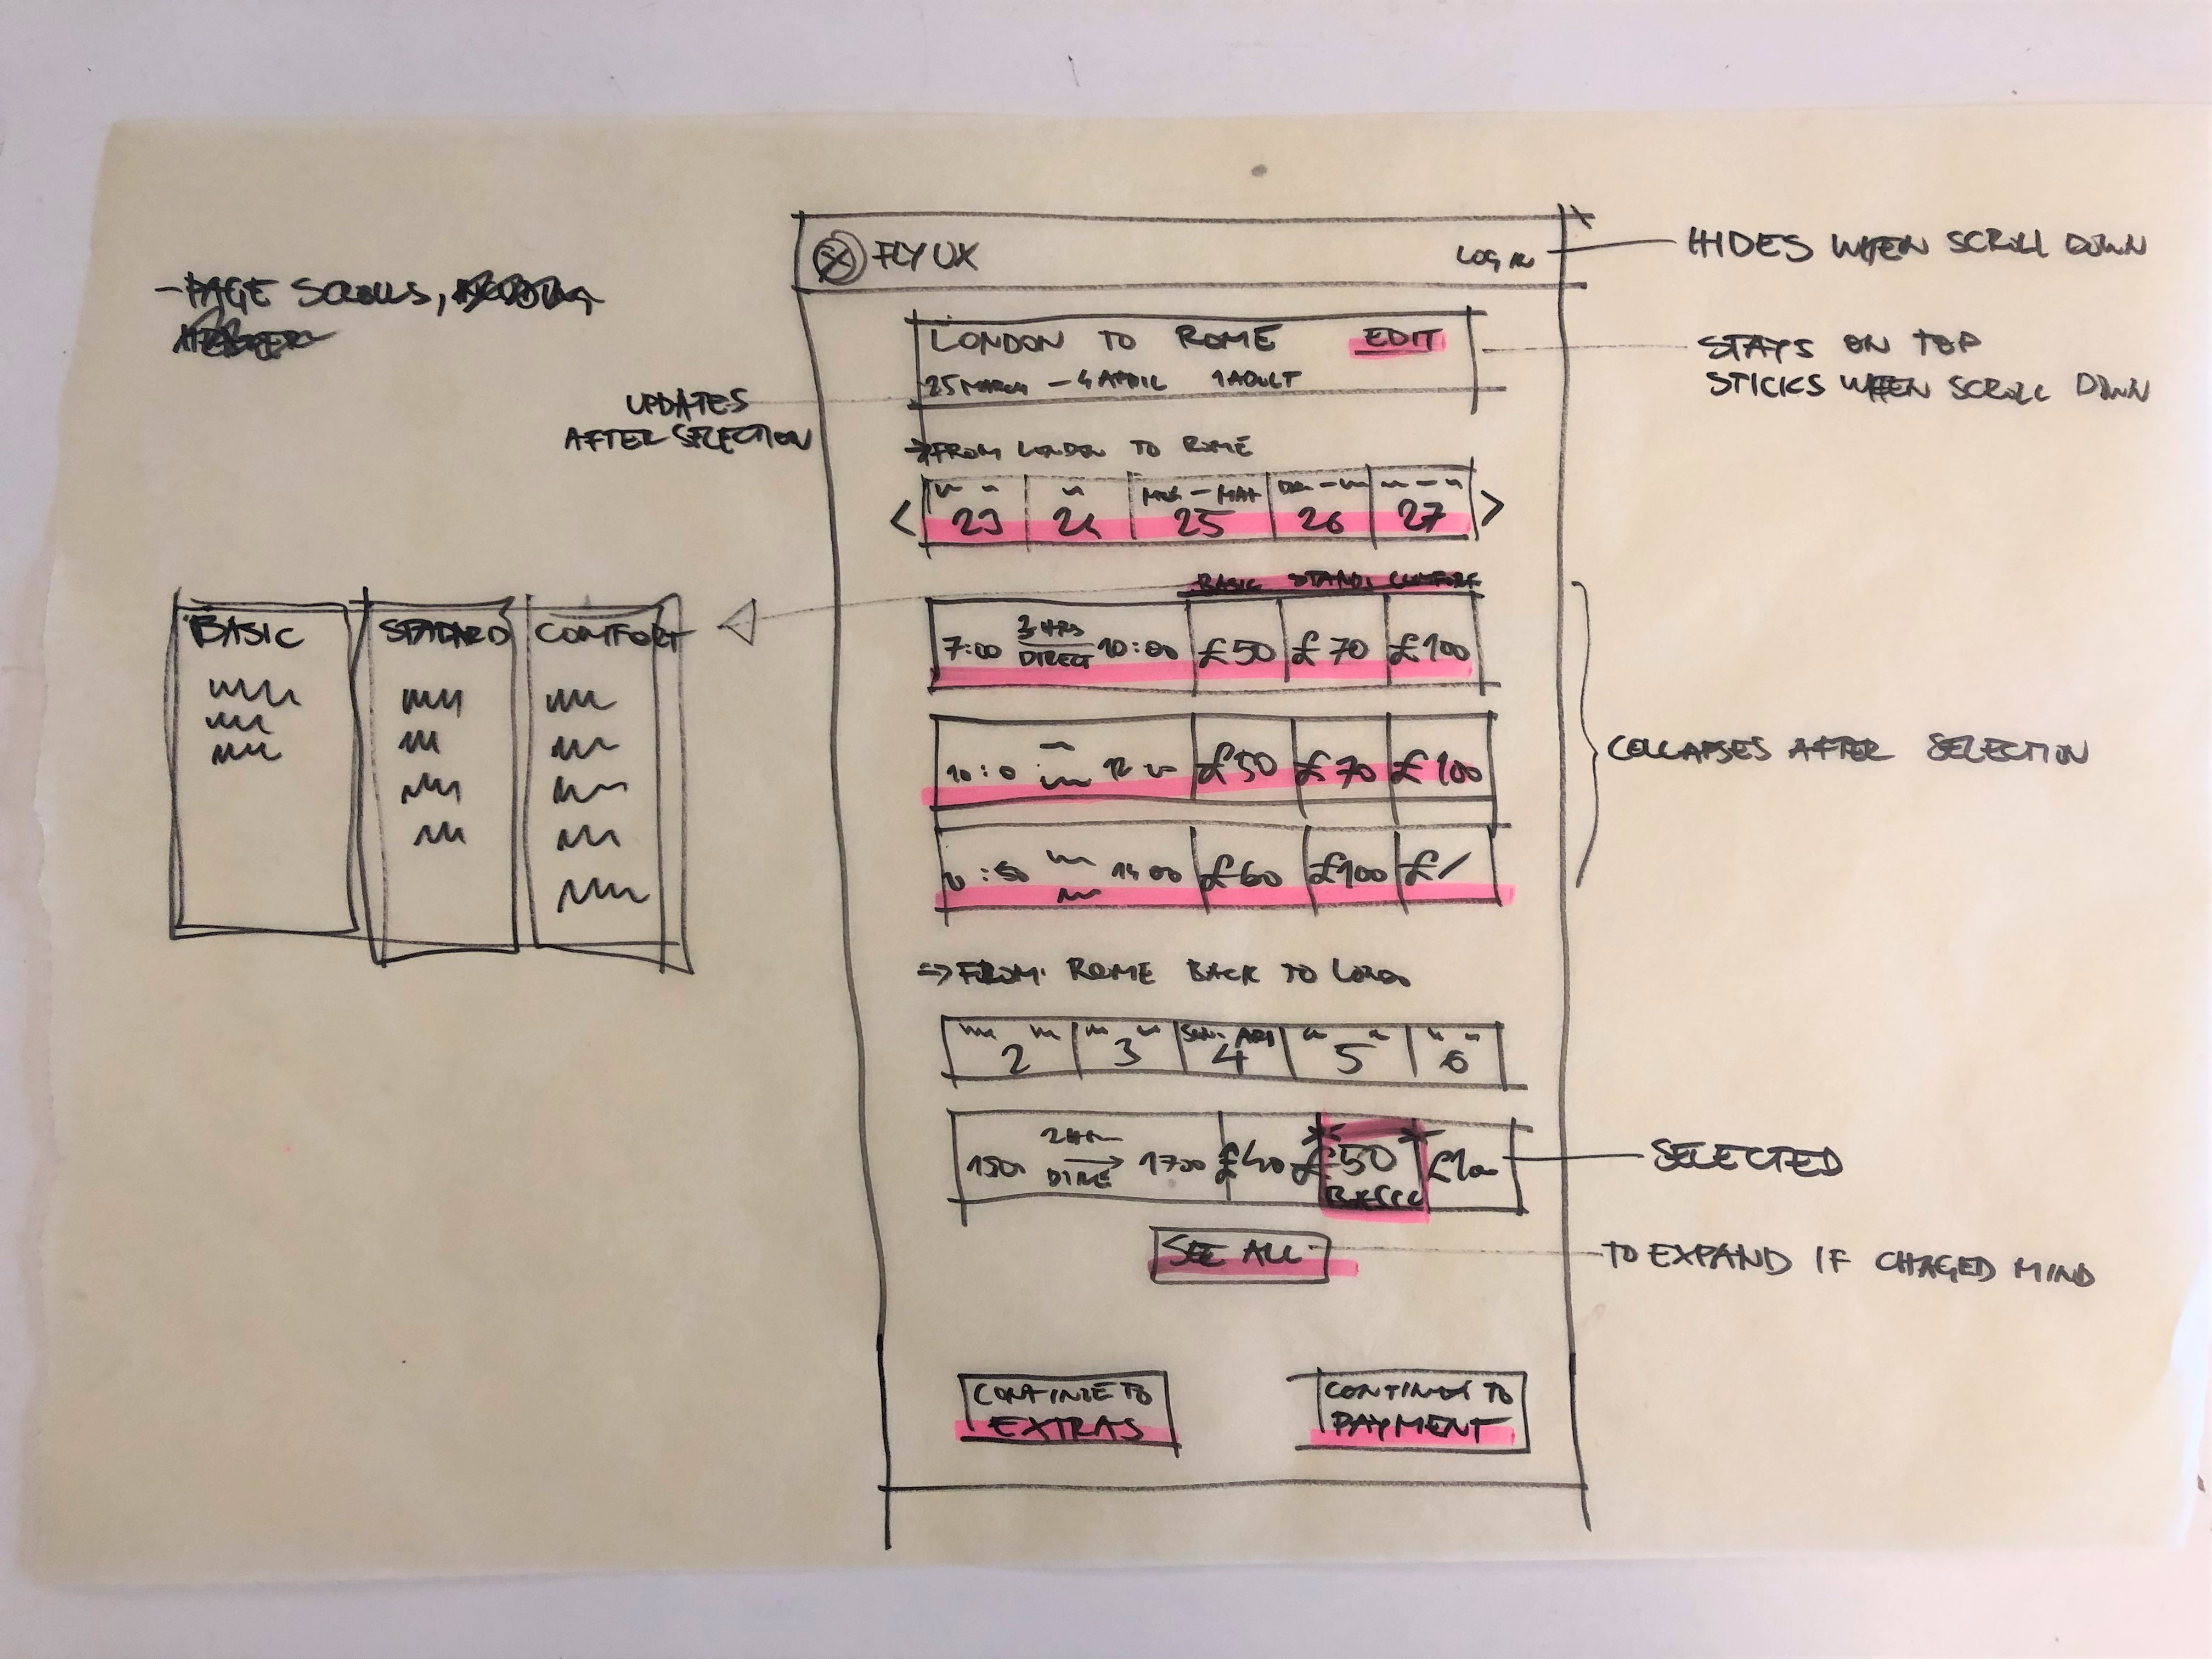 - PAGE SCROLLS,
FLY UX LOG IN
HIDES WHEN SCROLL DOWN
LONDON TO ROME EDIT
25 MARCH - 4 APRIL 1 ADULT
STAYS ON TOP
STICKS WHEN SCROLL DOWN
UPDATES
AFTER SELECTION
⇒ FROM LONDON TO ROME
< 23 24 25 26 27 >
BASIC STAND. COMFORT
7:00 3 HRS DIRECT 10:00 £50 £70 £100
10:0 12 £50 £70 £100
:50 14 00 £60 £100 £
COLLAPSES AFTER SELECTION
BASIC STADARD COMFORT
⇒ FROM ROME BACK TO
2 3 4 5 6
DIRE → 1700 £40 £50 £100
SELECTED
SEE ALL
TO EXPAND IF CHAGED MIND
CONTINUE TO
EXTRAS
CONTINUE TO
PAYMENT